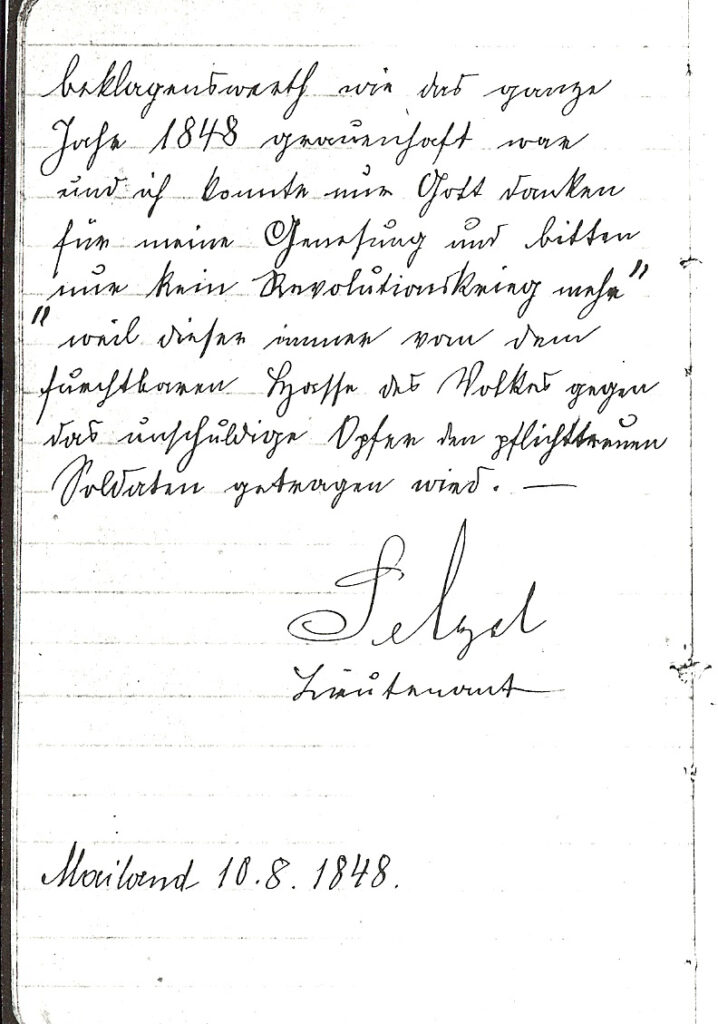 beklagenswerth wie das ganze
Jahr 1848 grauenhaft war
und ich konnte nur Gott danken
für meine Genesung und bitten
nur kein Revolutionskrieg mehr"
"weil dieser immer von dem
furchtbaren Hasse des Volkes gegen
das unschuldige Opfer den pflichttreuen
Soldaten getragen wird. —
Lieutenant
Mailand 10.8.1848.